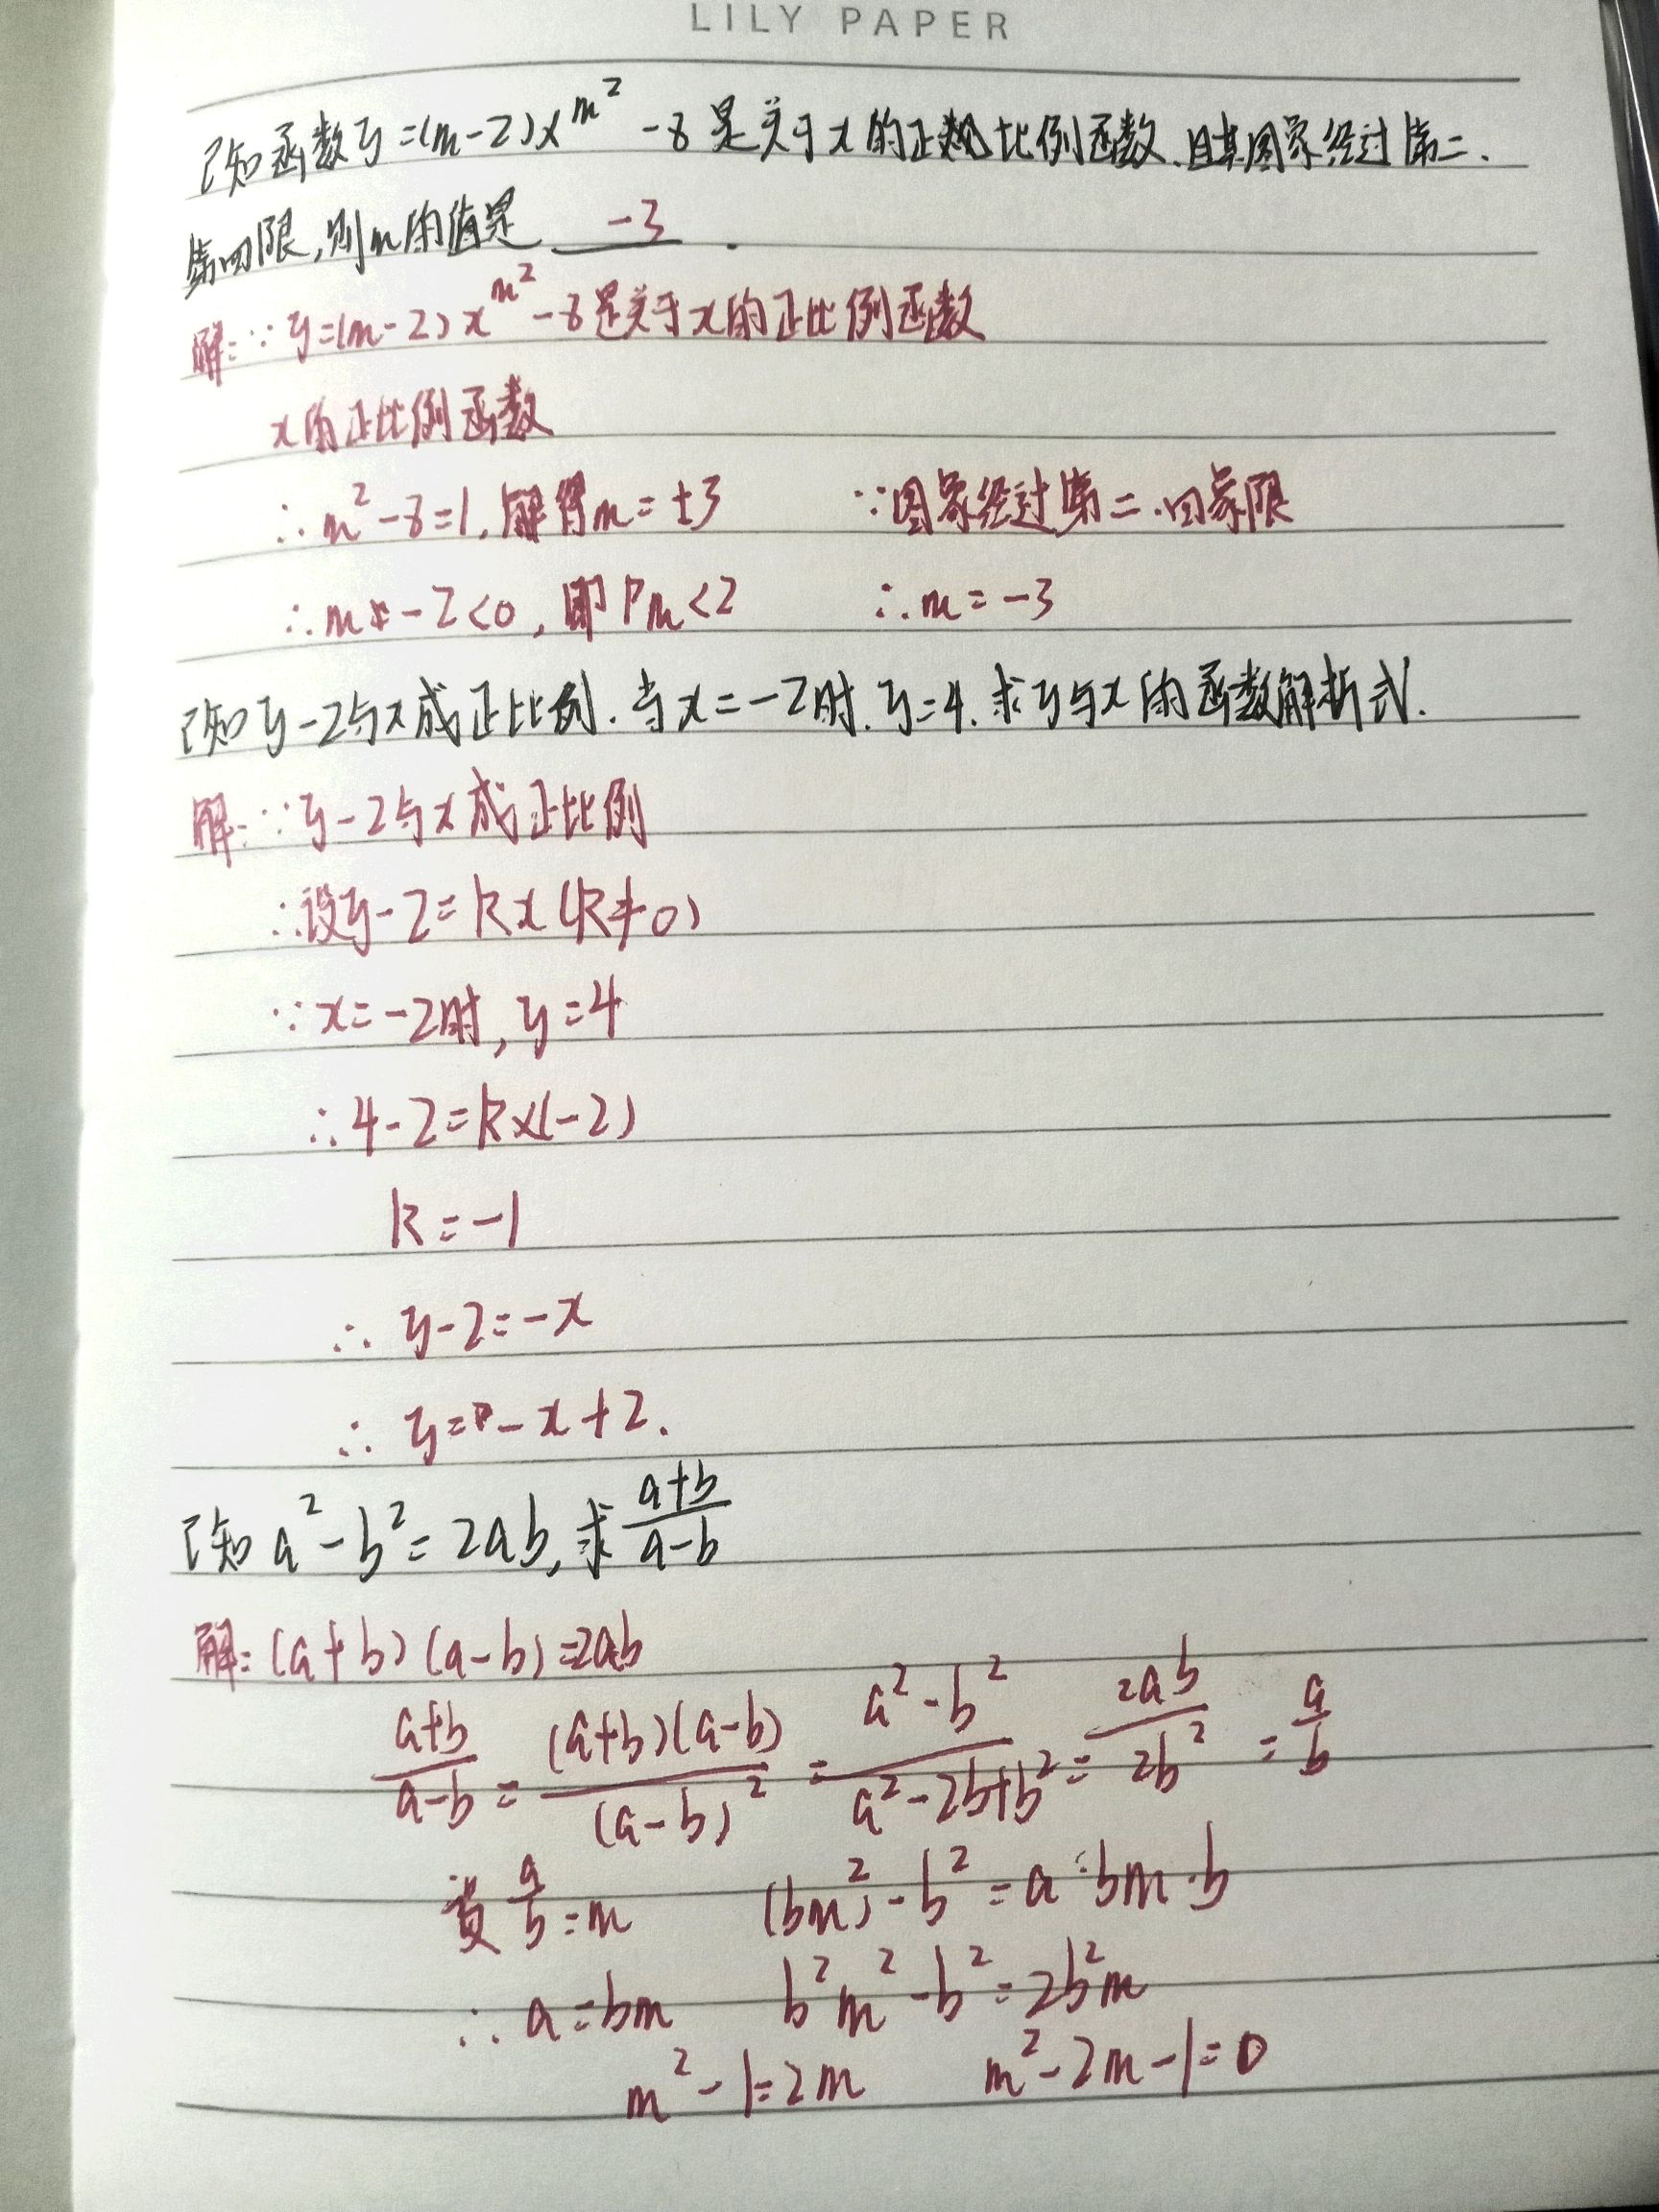 LILY PAPER
已知函数y=(m-2)x^m² -8是关于x的正比例函数.且其图象经过第二.
第四限,则m的值是 -3 .
解:∵y=(m-2)x^m² -8是关于x的正比例函数
x的正比例函数
∴m²-8=1,解得m=±3 ∵图象经过第二.四象限
∴m-2<0,即m<2 ∴m=-3
已知y-2与x成正比例.当x=-2时.y=4.求y与x的函数解析式.
解:∵y-2与x成正比例
∴设y-2=kx(k≠0)
∵x=-2时,y=4
∴4-2=k×(-2)
k=-1
∴y-2=-x
∴y=-x+2.
已知a²-b²=2ab,求(a+b)/(a-b)
解:(a+b)(a-b)=2ab
(a+b)/(a-b)=(a+b)(a-b)/(a-b)²=(a²-b²)/(a²-2b+b²)=2ab/2b²=a/b
a/b=m (bm)²-b²=a·bm·b
∴a=bm b²m²-b²=2b²m
m²-1=2m m²-2m-1=0